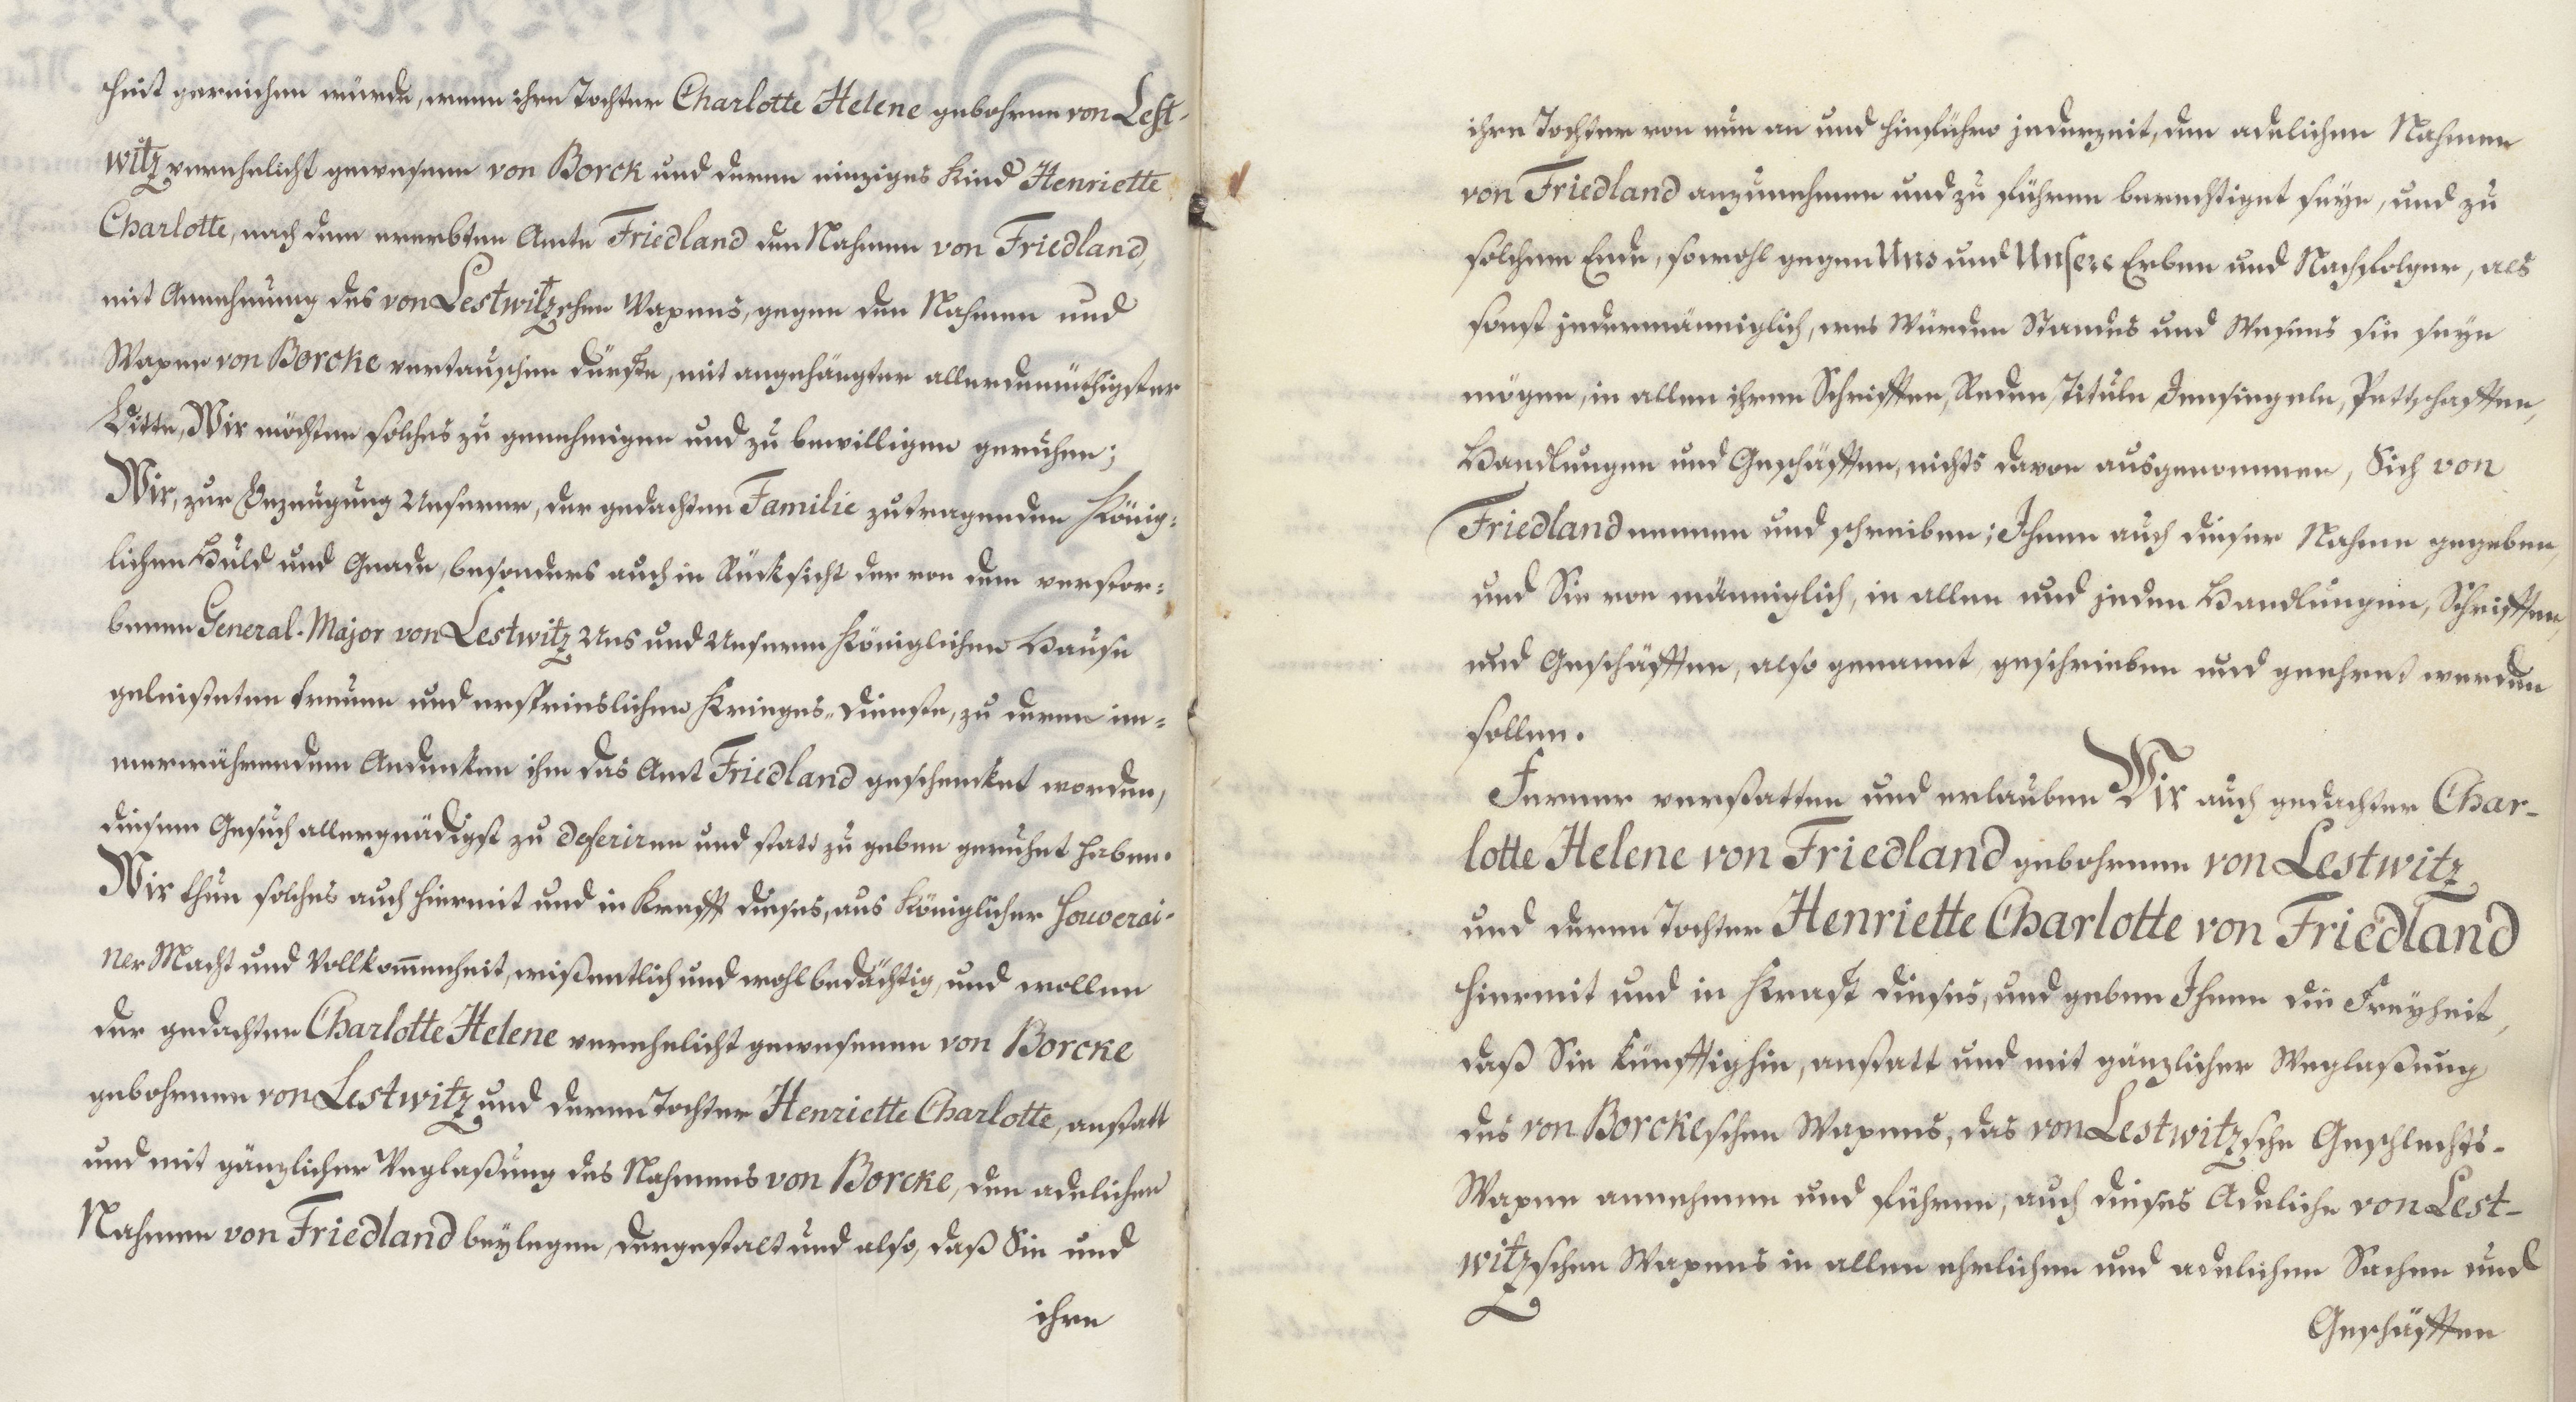 heit gereichen würde, wenn ihre Tochter Charlotte Helene gebohrne von Lest-
witz verehelicht gewesene von Borck und deren einziges Kind Henriette
Charlotte, nach dem ererbten Amte Friedland den Nahmen von Friedland,
mit Annehmung des von Lestwitzschen Wapens, gegen den Nahmen und
Wapen von Borcke vertauschen dürfte, mit angehängter allerdemüthigster
Bitte, Wir möchten solches zu genehmigen und zu bewilligen geruhen;
Wir, zur Bezeugung Unserer, der gedachten Familie zutragenden König-
lichen Huld und Gnade, besonders auch in Rücksicht der von dem verstor-
benen General-Major von Lestwitz Uns und Unserem Königlichen Hause
geleisteten treuen und ersprieslichen Krieges-Dienste, zu deren im-
merwährendem Andenken ihm das Amt Friedland geschencket worden,
diesem Gesuch allergnädigst zu deferiren und statt zu geben geruhet haben.
Wir thun solches auch hiermit und in Krafft dieses, aus Königlicher Souverai-
ner Macht und Vollkom̄enheit, wißentlich und wohlbedächtig, und wollen
der gedachten Charlotte Helene verehelicht gewesenen von Borcke
gebohrnen von Lestwitz und deren Tochter Henriette Charlotte, anstatt
und mit gänzlicher Weglaßung des Nahmens von Borcke, den adelichen
Nahmen von Friedland beylegen, dergestalt und also, daß Sie und
ihre
ihre Tochter von nun an und hinführo jederzeit, den adelichen Nahmen
von Friedland anzunehmen und zu führen berechtiget seyn, und zu
solchem Ende, sowohl gegen Uns und Unsere Erben und Nachfolger, als
sonst jedermänniglich, wes Würden Standes und Wesens sie seyn
mögen, in allen ihren Schrifften, Reden, Tituln, Insiegeln, Pettschafften,
Handlungen und Geschäfften, nichts davon ausgenommen, Sich von
Friedland nennen und schreiben; Ihnen auch dieser Nahme gegeben,
und Sie von männiglich, in allen und jeden Handlungen, Schrifften,
und Geschäfften, also genannt, geschrieben und geehret werden
sollen.
Ferner verstatten und erlauben Wir auch gedachter Char-
lotte Helene von Friedland gebohrnen von Lestwitz
und deren Tochter Henriette Charlotte von Friedland
hiermit und in Kraft dieses, und geben Ihnen die Freyheit,
daß Sie künfftighin, anstatt und mit gänzlicher Weglaßung
des von Borckeschen Wapens, das von Lestwitzsche Geschlechts-
Wapen annehmen und führen; auch dieses Adeliche von Lest-
witzschen Wapens in allen ehrlichen und adelichen Sachen und
Geschäfften